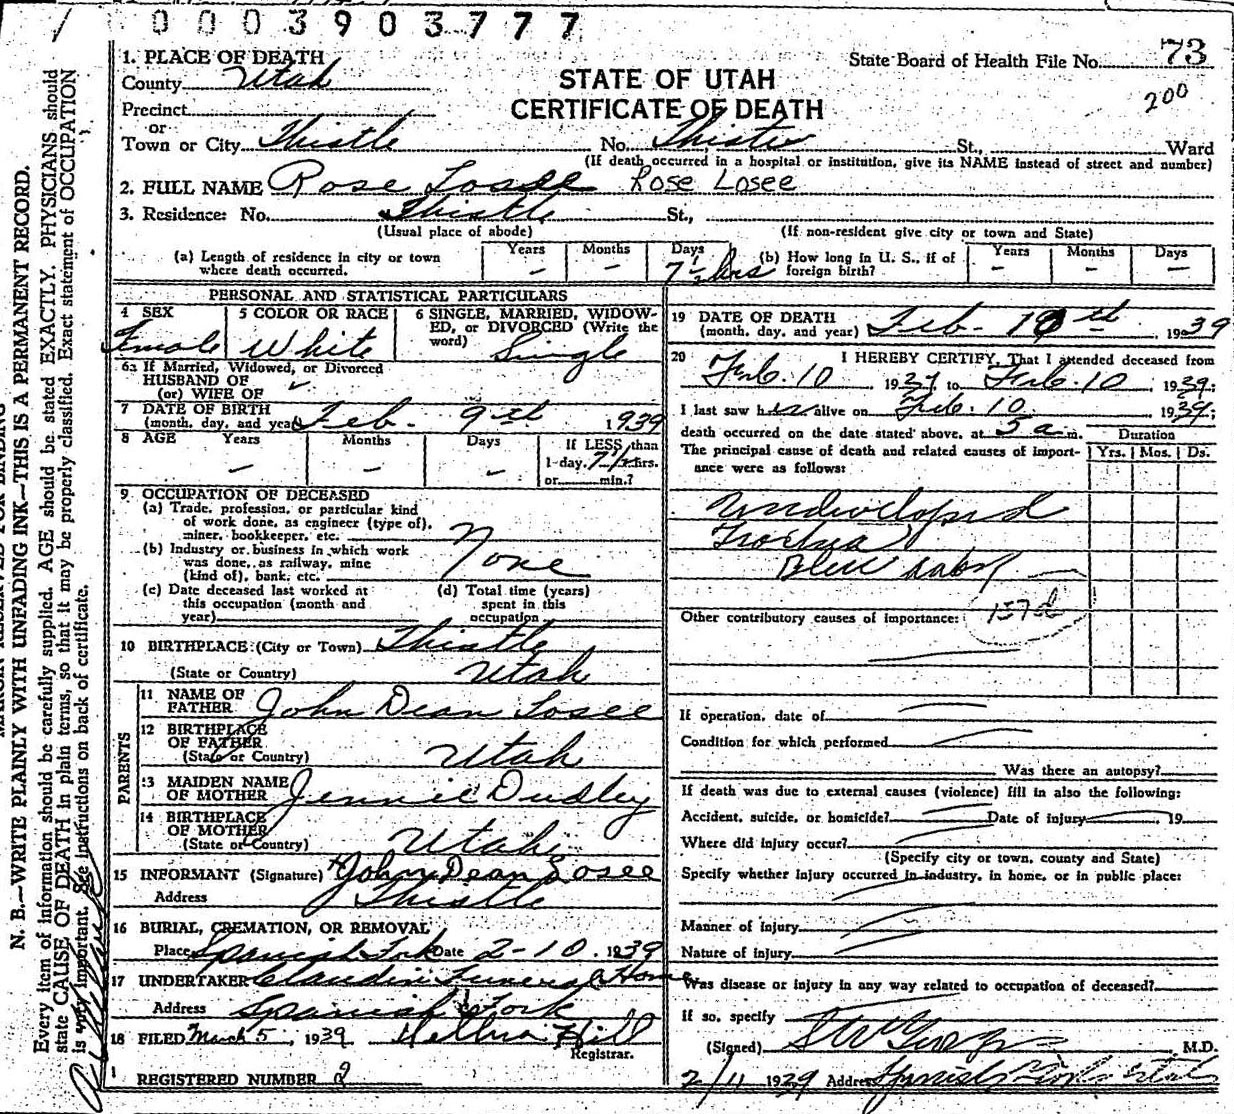 0003903777
1. PLACE OF DEATH
County Utah
Precinct
or
Town or City Thistle No. Thistle St., Ward
State Board of Health File No. 73
200
STATE OF UTAH
CERTIFICATE OF DEATH
(If death occurred in a hospital or institution, give its NAME instead of street and number)
2. FULL NAME Rose Losee Rose Losee
3. Residence: No. Thistle St.,
(Usual place of abode) (If non-resident give city or town and State)
(a) Length of residence in city or town where death occurred. Years - Months - Days 7 1/2 hrs
(b) How long in U. S., if of foreign birth? Years - Months - Days -
PERSONAL AND STATISTICAL PARTICULARS
4 SEX Female
5 COLOR OR RACE White
6 SINGLE, MARRIED, WIDOWED, or DIVORCED (Write the word) Single
6a If Married, Widowed, or Divorced
HUSBAND OF
(or) WIFE OF
7 DATE OF BIRTH
(month, day, and year) Feb. 9th 1939
8 AGE Years - Months - Days - If LESS than
1 day, 7 1/2 hrs.
or min.?
9 OCCUPATION OF DECEASED
(a) Trade, profession, or particular kind
of work done, as engineer (type of),
miner, bookkeeper, etc.
(b) Industry or business in which work
was done, as railway, mine
(kind of), bank, etc. None
(c) Date deceased last worked at
this occupation (month and
year)
(d) Total time (years)
spent in this
occupation
10 BIRTHPLACE: (City or Town) Thistle
(State or Country) Utah
PARENTS
11 NAME OF FATHER John Dean Losee
12 BIRTHPLACE OF FATHER
(State or Country) Utah
13 MAIDEN NAME OF MOTHER Jennie Dudley
14 BIRTHPLACE OF MOTHER
(State or Country) Utah
15 INFORMANT (Signature) John Dean Losee
Address Thistle
16 BURIAL, CREMATION, OR REMOVAL
Place Spanish Fork Date 2-10. 1939
17 UNDERTAKER Claudin Funeral Home
Address Spanish Fork
18 FILED March 5, 1939 Hill
Registrar.
REGISTERED NUMBER 2
19 DATE OF DEATH
(month, day, and year) Feb. 10th 1939
20 I HEREBY CERTIFY, That I attended deceased from
Feb. 10 1939 to Feb. 10, 1939;
I last saw her alive on Feb. 10 1939;
death occurred on the date stated above, at 5 a m.
The principal cause of death and related causes of importance were as follows:
Duration
Yrs. Mos. Ds.
Undeveloped
Blue baby
Other contributory causes of importance:
If operation, date of
Condition for which performed
Was there an autopsy?
If death was due to external causes (violence) fill in also the following:
Accident, suicide, or homicide? Date of injury 19
Where did injury occur?
(Specify city or town, county and State)
Specify whether injury occurred in industry, in home, or in public place:
Manner of injury
Nature of injury
Was disease or injury in any way related to occupation of deceased?
If so, specify
(Signed) M.D.
2/11 1939 Address Spanish Fork Utah
N. B.—WRITE PLAINLY WITH UNFADING INK—THIS IS A PERMANENT RECORD.
Every item of information should be carefully supplied. AGE should be stated EXACTLY. PHYSICIANS should
state CAUSE OF DEATH in plain terms, so that it may be properly classified. Exact statement of OCCUPATION
is very important. See instructions on back of certificate.